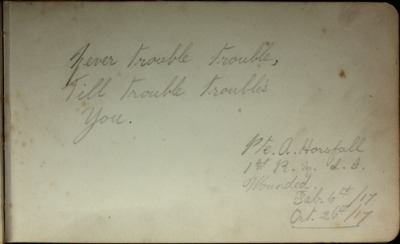 Never trouble trouble,
Till trouble troubles
You.
Pte. A. Horsfall
1st R. N. L. I.
Wounded
Feb. 6th/17
Oct. 26th/17